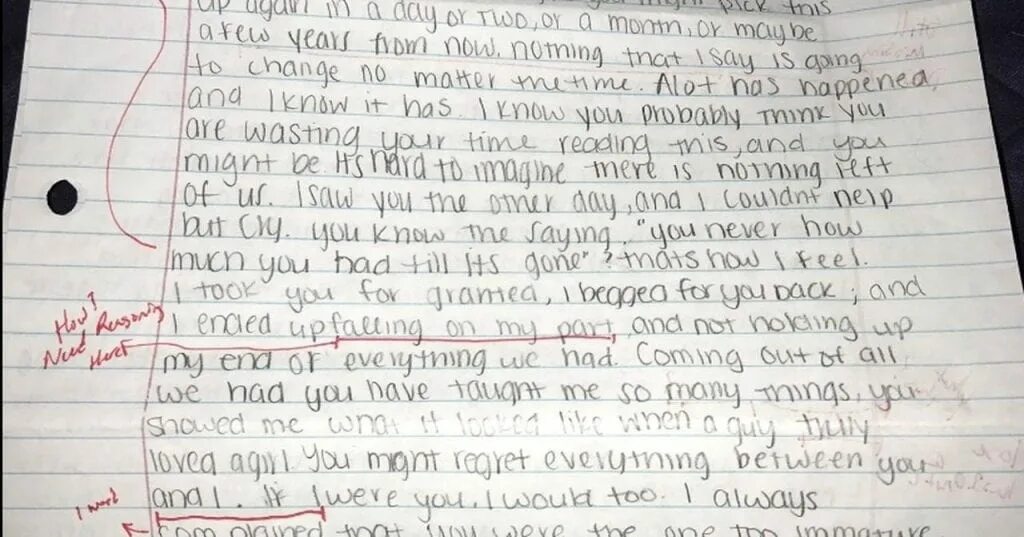 up again in a day or two, or a month, or maybe
a few years from now. nothing that I say is going
to change no matter the time. Alot has happened,
and I know it has. I know you probably think you
are wasting your time reading this, and you
might be. It's hard to imagine there is nothing left
of us. I saw you the other day, and I couldnt help
but cry. you know the saying, "you never how
much you had till its gone"? thats how I feel.
I took you for granted, I begged for you back; and
I ended up falling on my part, and not holding up
my end of everything we had. Coming out of all
we had you have taught me so many things, you
showed me what it looked like when a guy truly
loved a girl. You might regret everything between you
and I. If I were you, I would too. I always
complained that you were the one too immature
How?
Need Reasoning
Here
1 word